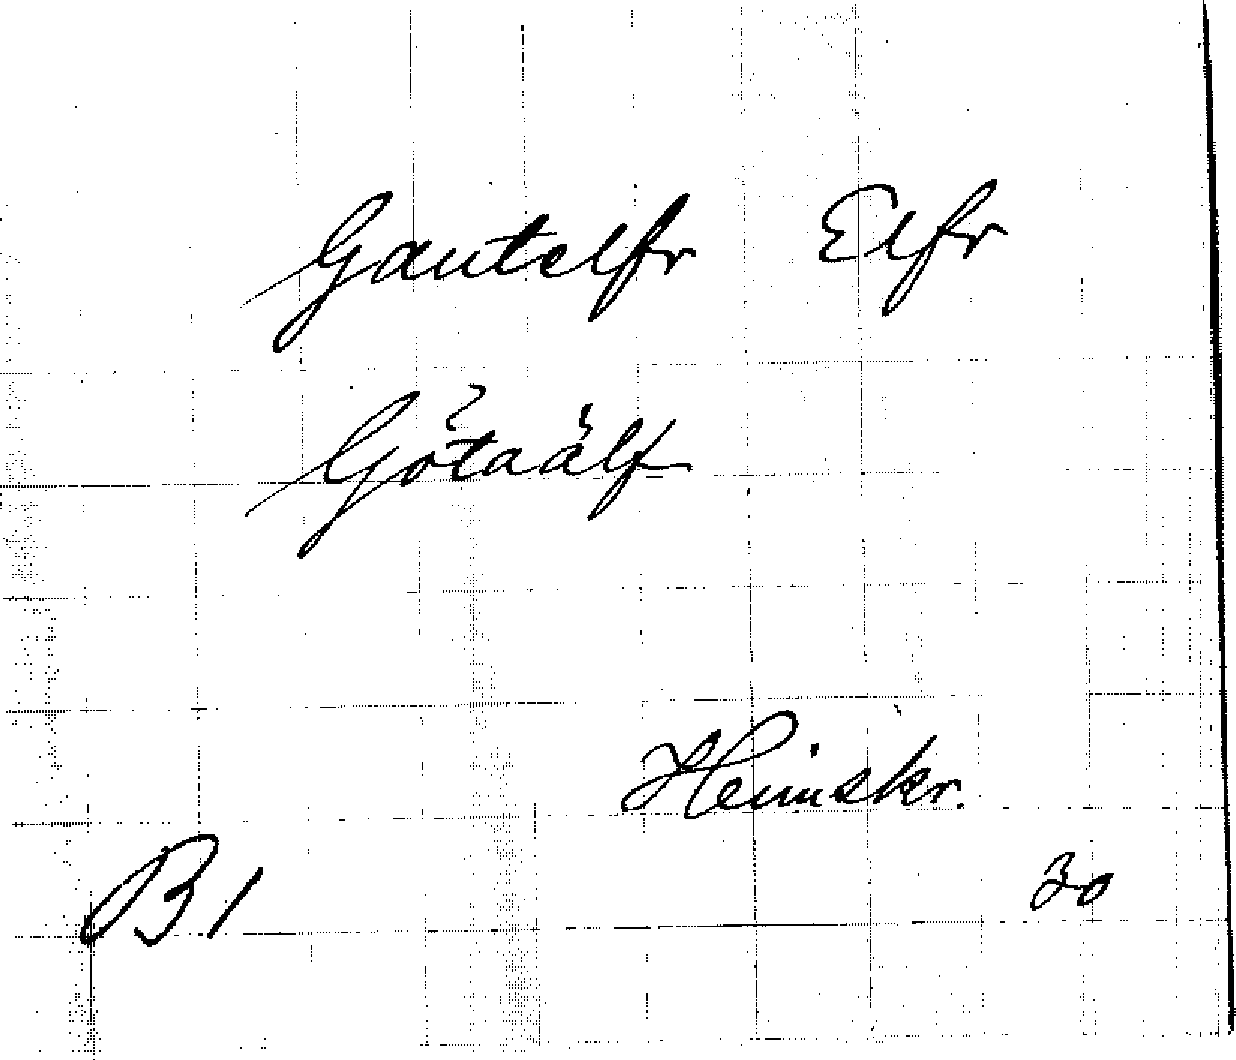 Gautelfr Elfr
Götaälf
Heimskr.
B1 30